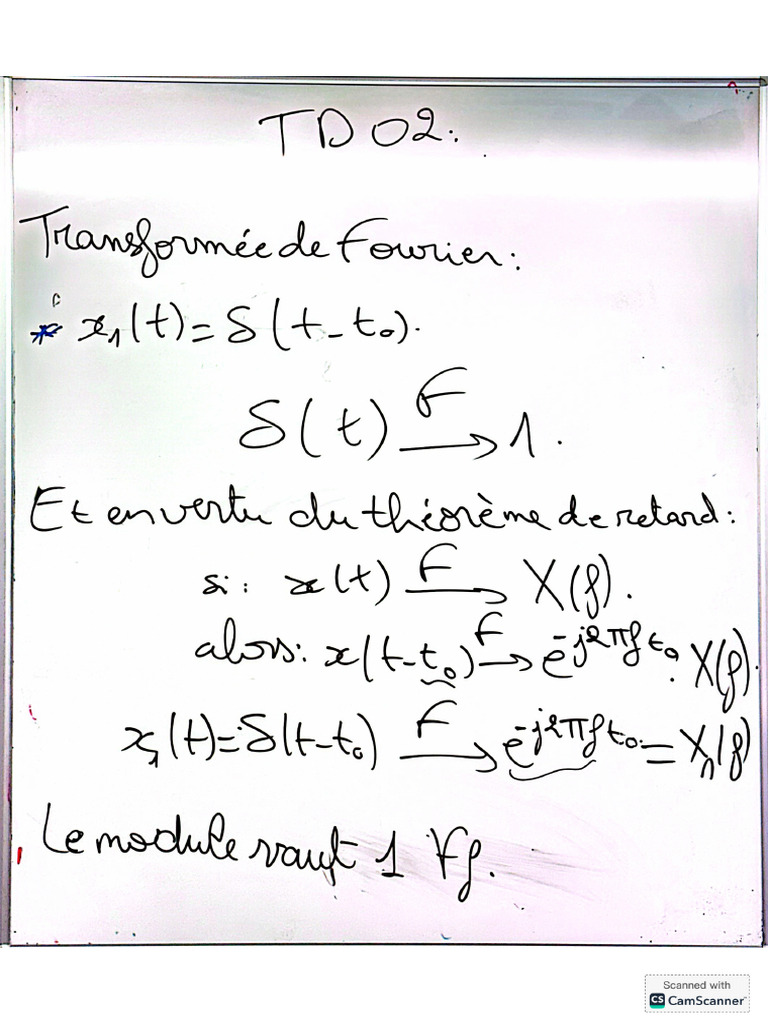 TD 02:
Transformée de Fourier:
* x₁(t) = δ(t - t₀).
δ(t) F→ 1.
Et en vertu du théorème de retard:
si: x(t) F→ X(f).
alors: x(t-t₀) F→ e^{-j2πf t₀}. X(f).
x₁(t) = δ(t-t₀) F→ e^{-j2πf t₀} = X₁(f)
Le module vaut 1 ∀f.
Scanned with
CS CamScanner